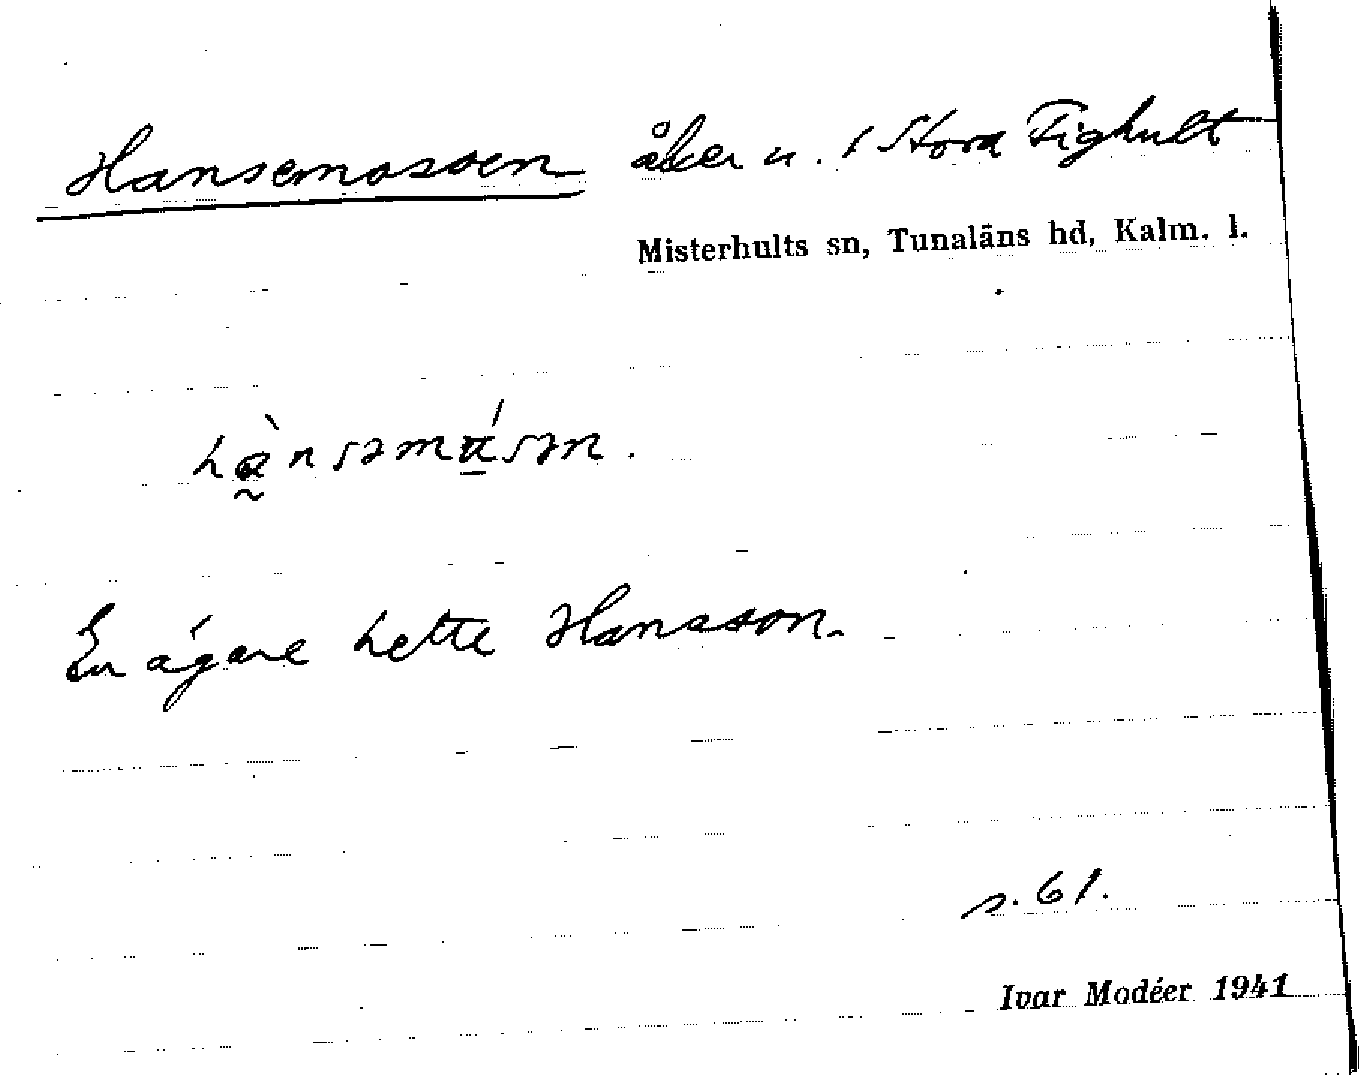 Hansemossen åker u. 1 Stora Fighult
Misterhults sn, Tunaläns hd, Kalm. l.
En ägare hette Hansson.
s. 61.
Ivar Modéer 1941